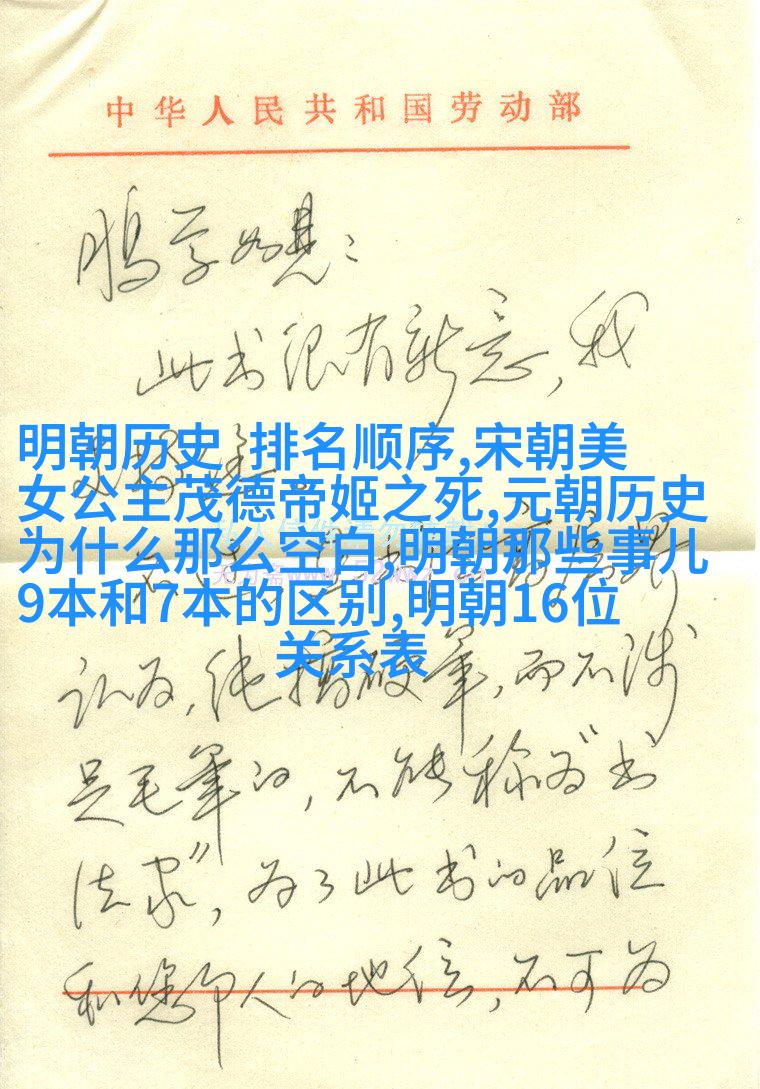 中华人民共和国劳动部
鹏学如晤：
此书很有新意，我
明朝历史 排名顺序,宋朝美
女公主茂德帝姬之死,元朝历史
为什么那么空白,明朝那些事儿
9本和7本的区别,明朝16位
关系表
认为，纯搞硬笔，而不涉
足毛笔的，不能称为“书
法家”，为了此书的品位
和您印人的地位，不可为